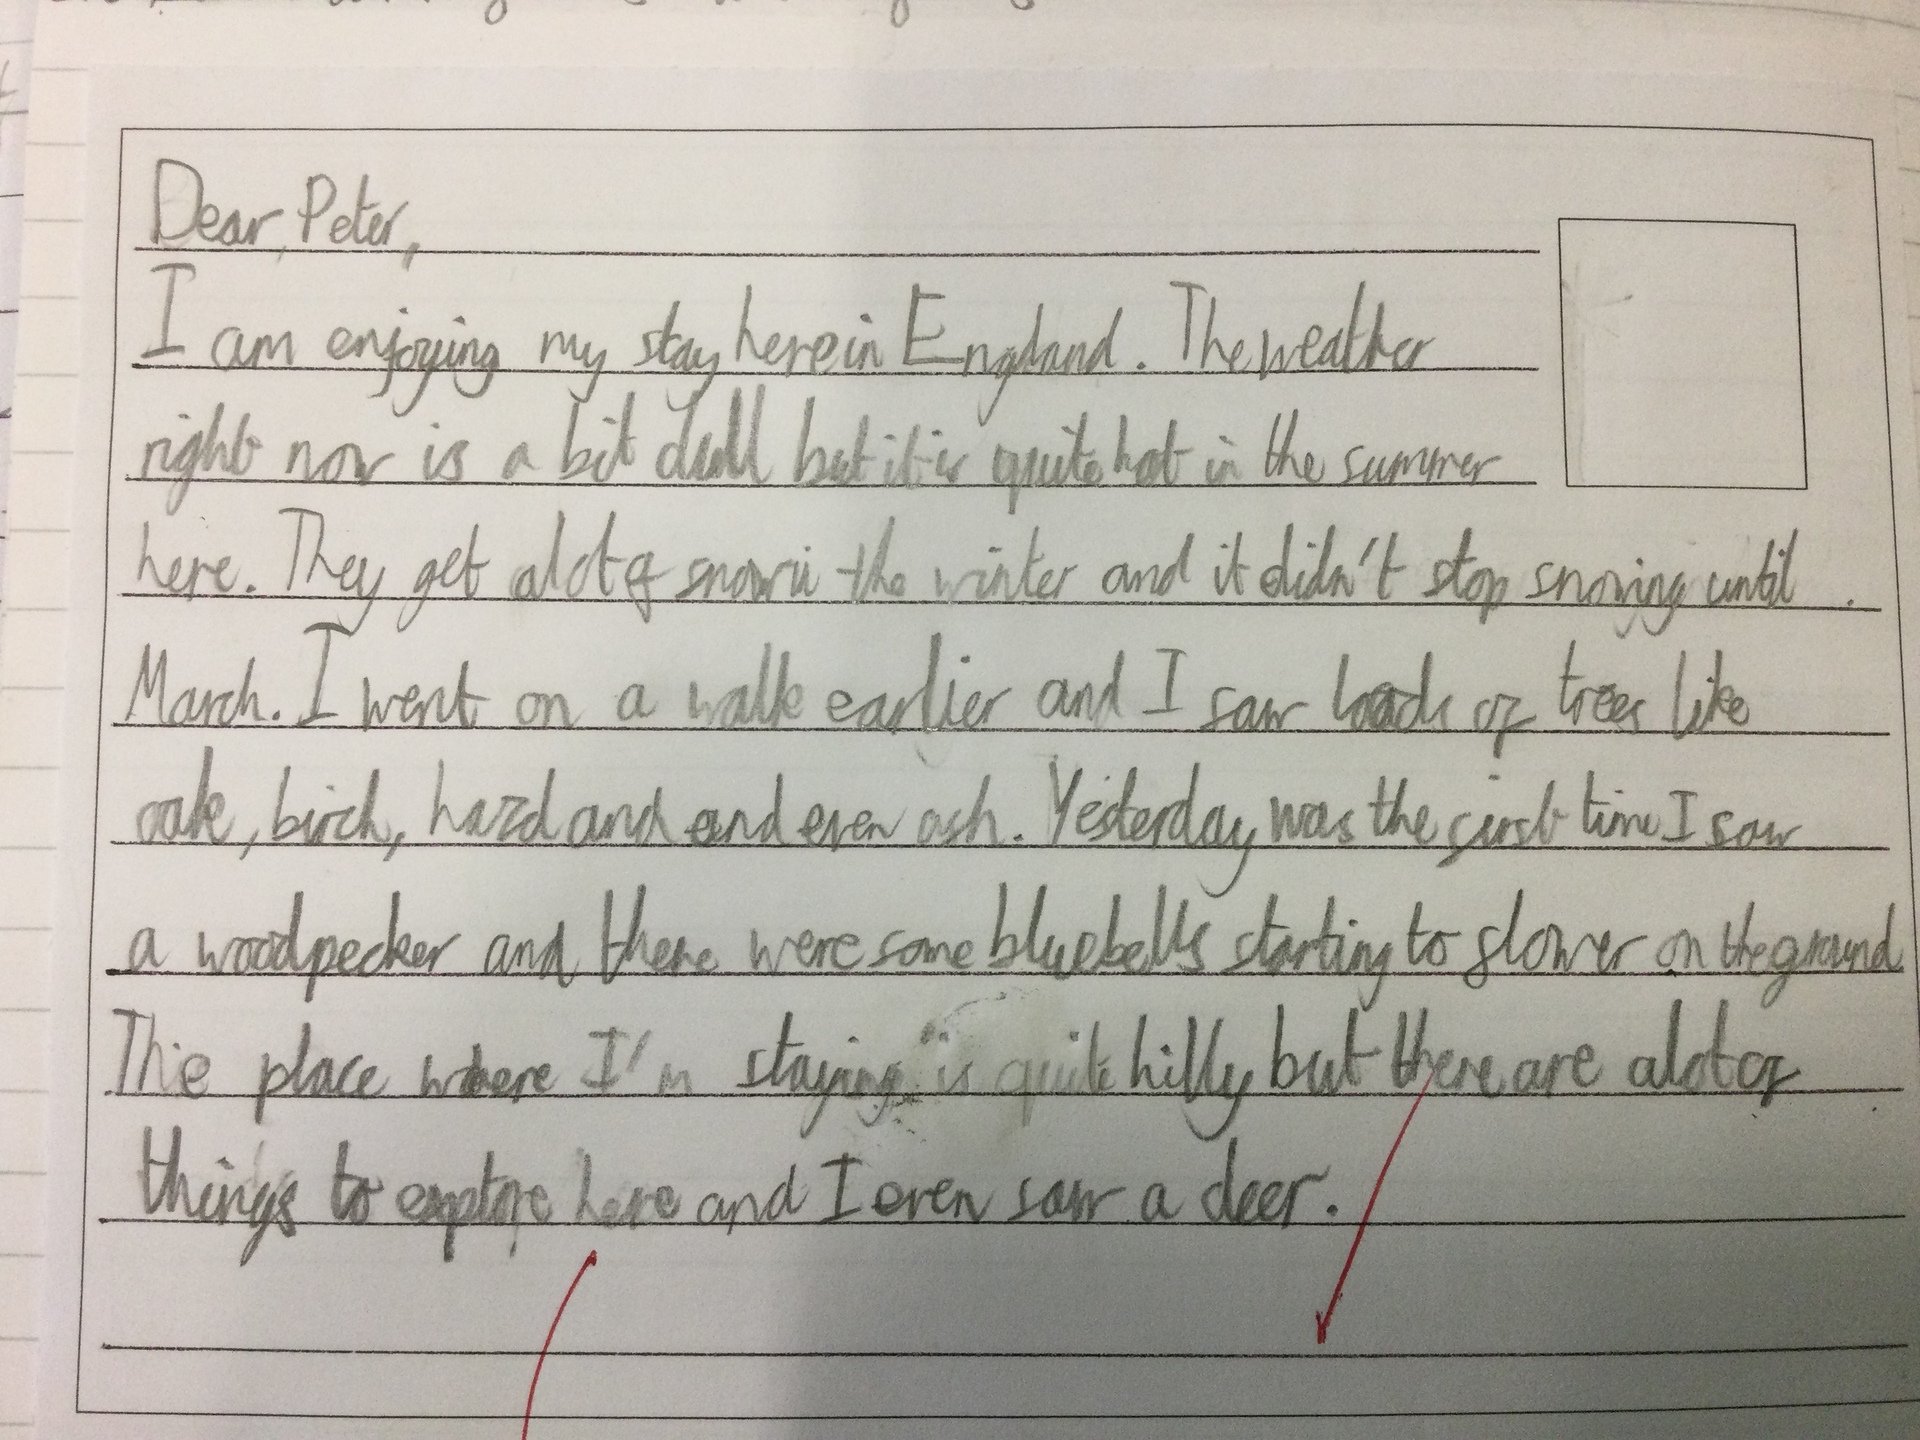 Dear, Peter,
I am enjoying my stay here in England. The weather
right now is a bit dull but it is quite hot in the summer
here. They get alot of snow in the winter and it didn't stop snowing until
March. I went on a walk earlier and I saw loads of trees like
oak, birch, hazd and and even ash. Yesterday was the first time I saw
a woodpecker and there were some bluebells starting to flower on the ground
The place where I'm staying is quite hilly but there are alot of
things to explore here and I even saw a deer.